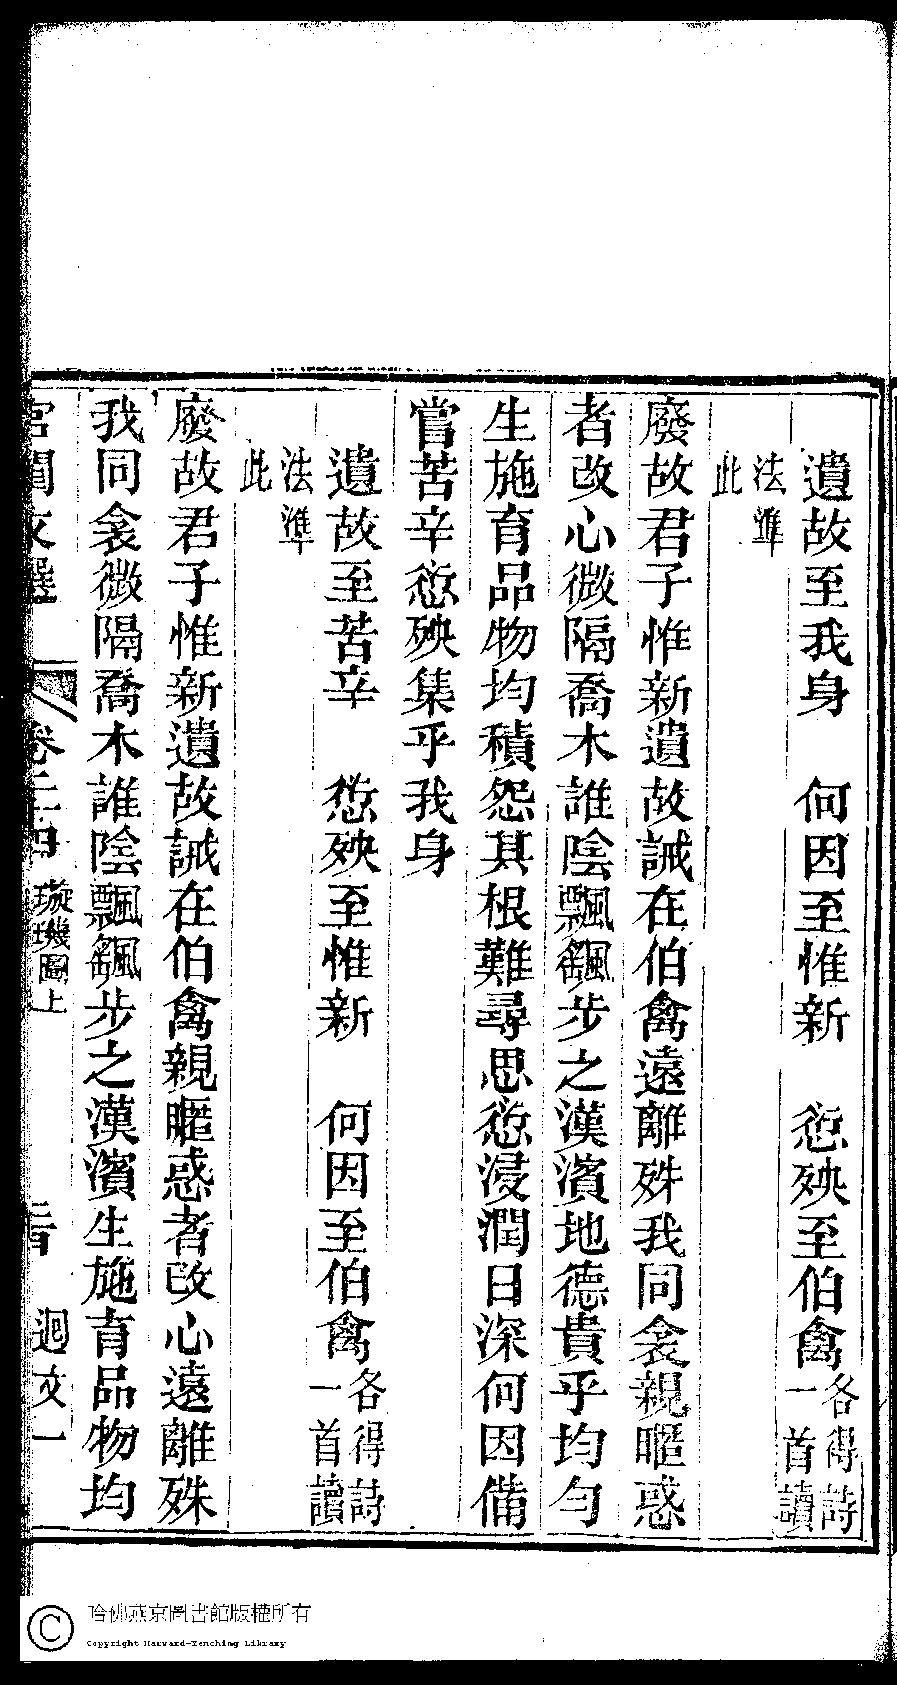 遺故至我身　何因至惟新　愆殃至伯禽各得詩一首讀
法準此
廢故君子惟新遺故誡在伯禽遠離殊我同衾親暱惑
者改心微隔喬木誰陰飄飖步之漢濱地德貴乎均勻
生施育品物均積怨其根難尋思愆浸潤日深何因備
嘗苦辛愆殃集乎我身
遺故至苦辛　愆殃至惟新　何因至伯禽各得詩一首讀
法準此
廢故君子惟新遺故誡在伯禽親暱惑者改心遠離殊
我同衾微隔喬木誰陰飄飖步之漢濱生施育品物均
宮閨文選　卷二十四　璇璣圖上　迴文一
哈佛燕京圖書館版權所有
Copyright Harvard-Yenching Library